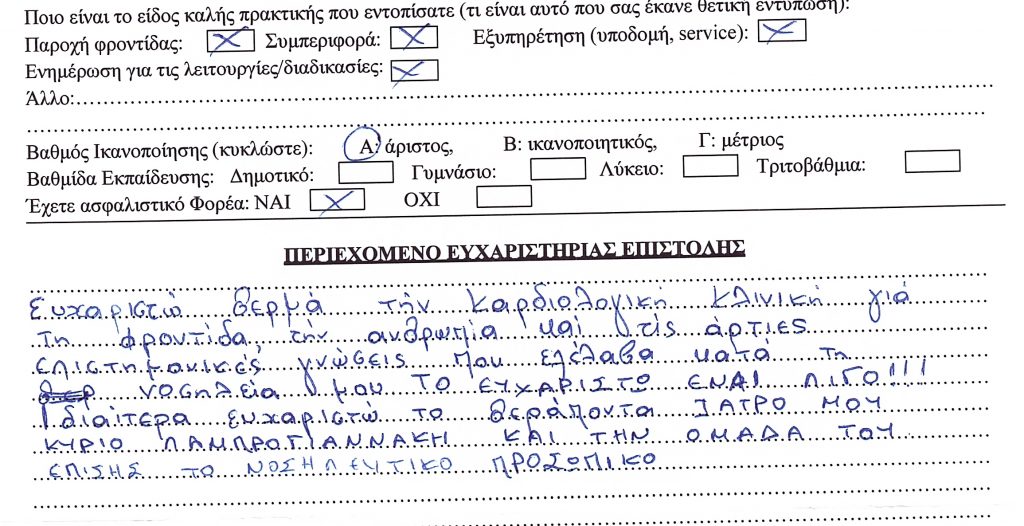 Ποιο είναι το είδος καλής πρακτικής που εντοπίσατε (τι είναι αυτό που σας έκανε θετική εντύπωση):
Παροχή φροντίδας: Συμπεριφορά: Εξυπηρέτηση (υποδομή, service):
Ενημέρωση για τις λειτουργίες/διαδικασίες:
Άλλο:
Βαθμός Ικανοποίησης (κυκλώστε): Α: άριστος, Β: ικανοποιητικός, Γ: μέτριος
Βαθμίδα Εκπαίδευσης: Δημοτικό: Γυμνάσιο: Λύκειο: Τριτοβάθμια:
Έχετε ασφαλιστικό Φορέα: ΝΑΙ ΟΧΙ
ΠΕΡΙΕΧΟΜΕΝΟ ΕΥΧΑΡΙΣΤΗΡΙΑΣ ΕΠΙΣΤΟΛΗΣ
Ευχαριστώ θερμά την Καρδιολογική Κλινική γιά
τη φροντίδα, την ανθρωπια και τις άρτιες
επιστημονικές γνώσεις που ελέλαβα κατά τη
νοσηλεία μου ΤΟ ΕΥΧΑΡΙΣΤΩ ΕΝΑΙ ΛΙΓΟ!!!
Ιδιαίτερα ευχαριστώ το θεράποντα ΙΑΤΡΟ ΜΟΥ
ΚΥΡΙΟ ΛΑΜΠΡΟΓΙΑΝΝΑΚΗ ΚΑΙ ΤΗΝ ΟΜΑΔΑ ΤΟΥ
ΕΠΙΣΗΣ ΤΟ ΝΟΣΗΛΕΥΤΙΚΟ ΠΡΟΣΩΠΙΚΟ